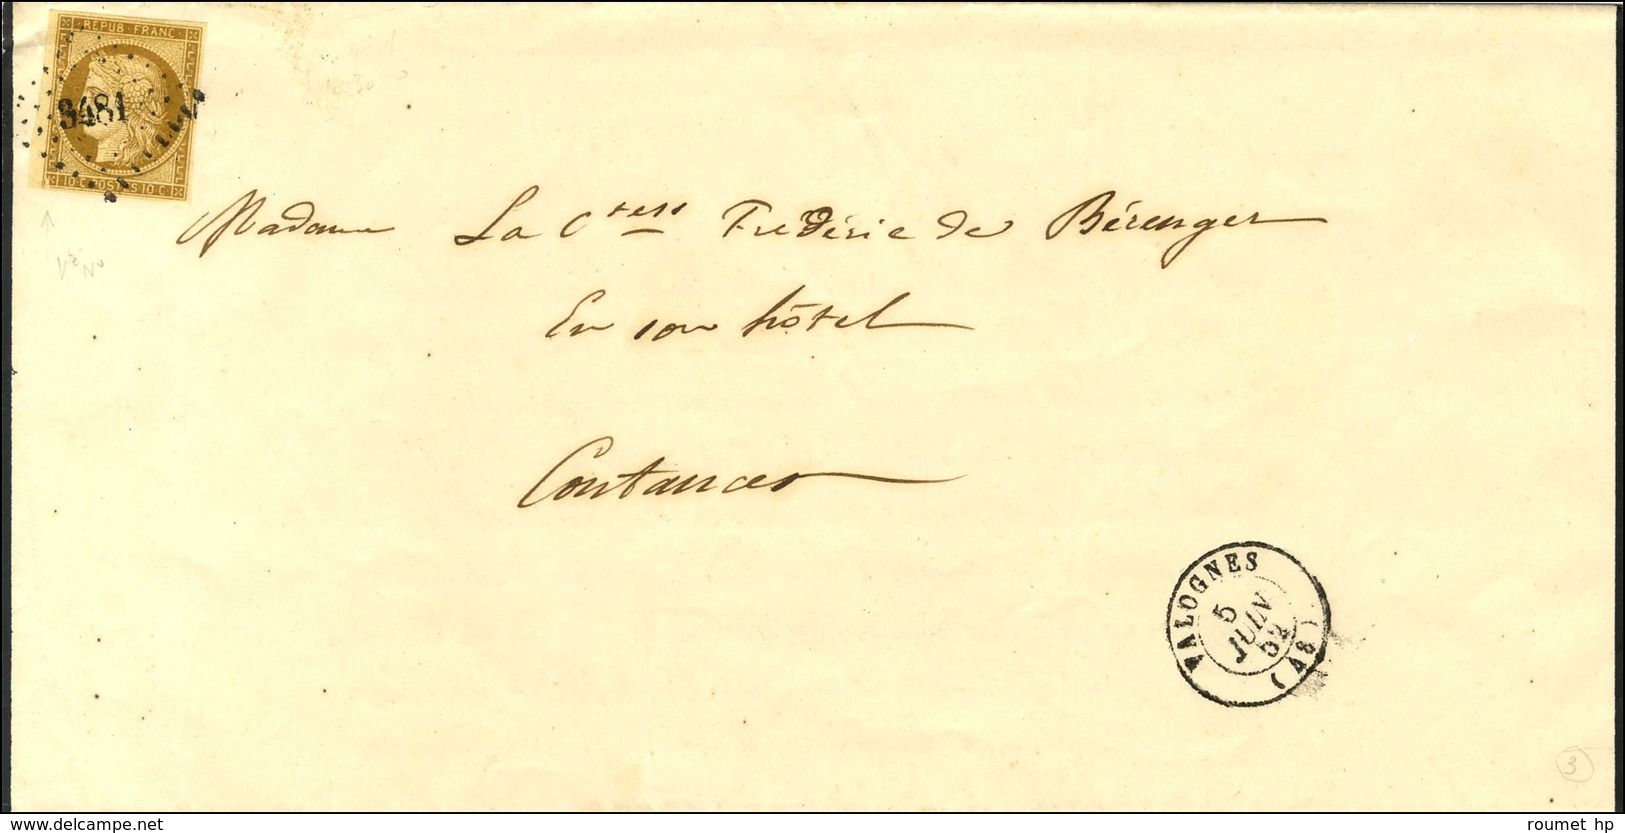 REPUB. FRANC.
3481
10 C. POSTES 10 C
Vté No
Madame La Ctesse Frédéric de Bérenger
En son hôtel
Coutances
VALOGNES
5
JUIN
52
(48)
3
www.delcampe.net
roumet hp